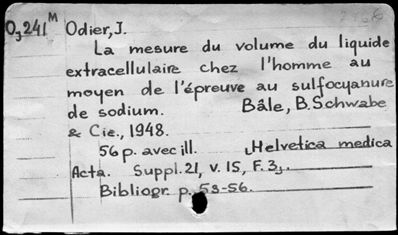 O₃241ᴹ Odier, J.
La mesure du volume du liquide
extracellulaire chez l'homme au
moyen de l'épreuve au sulfocyanure
de sodium. Bâle, B. Schwabe
& Cie., 1948.
56 p. avec ill. Helvetica medica
Acta. Suppl. 21, v. 15, F. 3,.
Bibliogr. p. 53-56.